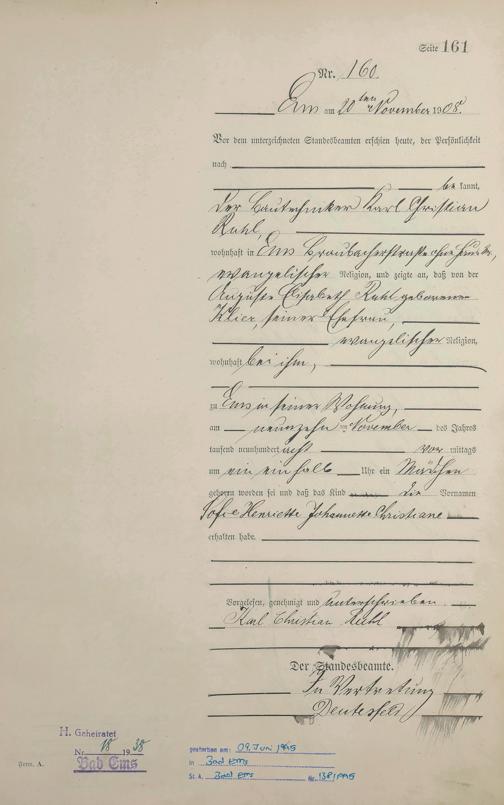 Seite 161
Nr. 160.
Ems am 20ten November 1908.
Vor dem unterzeichneten Standesbeamten erschien heute, der Persönlichkeit
nach
bekannt,
der Bautechniker Karl Christian
Ruhl,
wohnhaft in Ems Braubacherstraße ohne
evangelischer Religion, und zeigte an, daß von der
Auguste Elisabeth Ruhl geborenen
seiner Ehefrau,
evangelischer Religion,
wohnhaft bei ihm,
zu Ems in seiner Wohnung,
am neunzehn November des Jahres
tausend neunhundert acht vor mittags
um ein einhalb Uhr ein Mädchen
geboren worden sei und daß das Kind die Vornamen
Sofie Henriette Johannette Christiane
erhalten habe.
Vorgelesen, genehmigt und unterschrieben
Karl Christian Ruhl
Der Standesbeamte.
In Vertretung
H. Geheiratet
Nr. 18 1938
Bad Ems
gestorben am: 09. Jun 1995
in Bad Ems
St. A. Bad Ems Nr. 138/1995
Form. A.